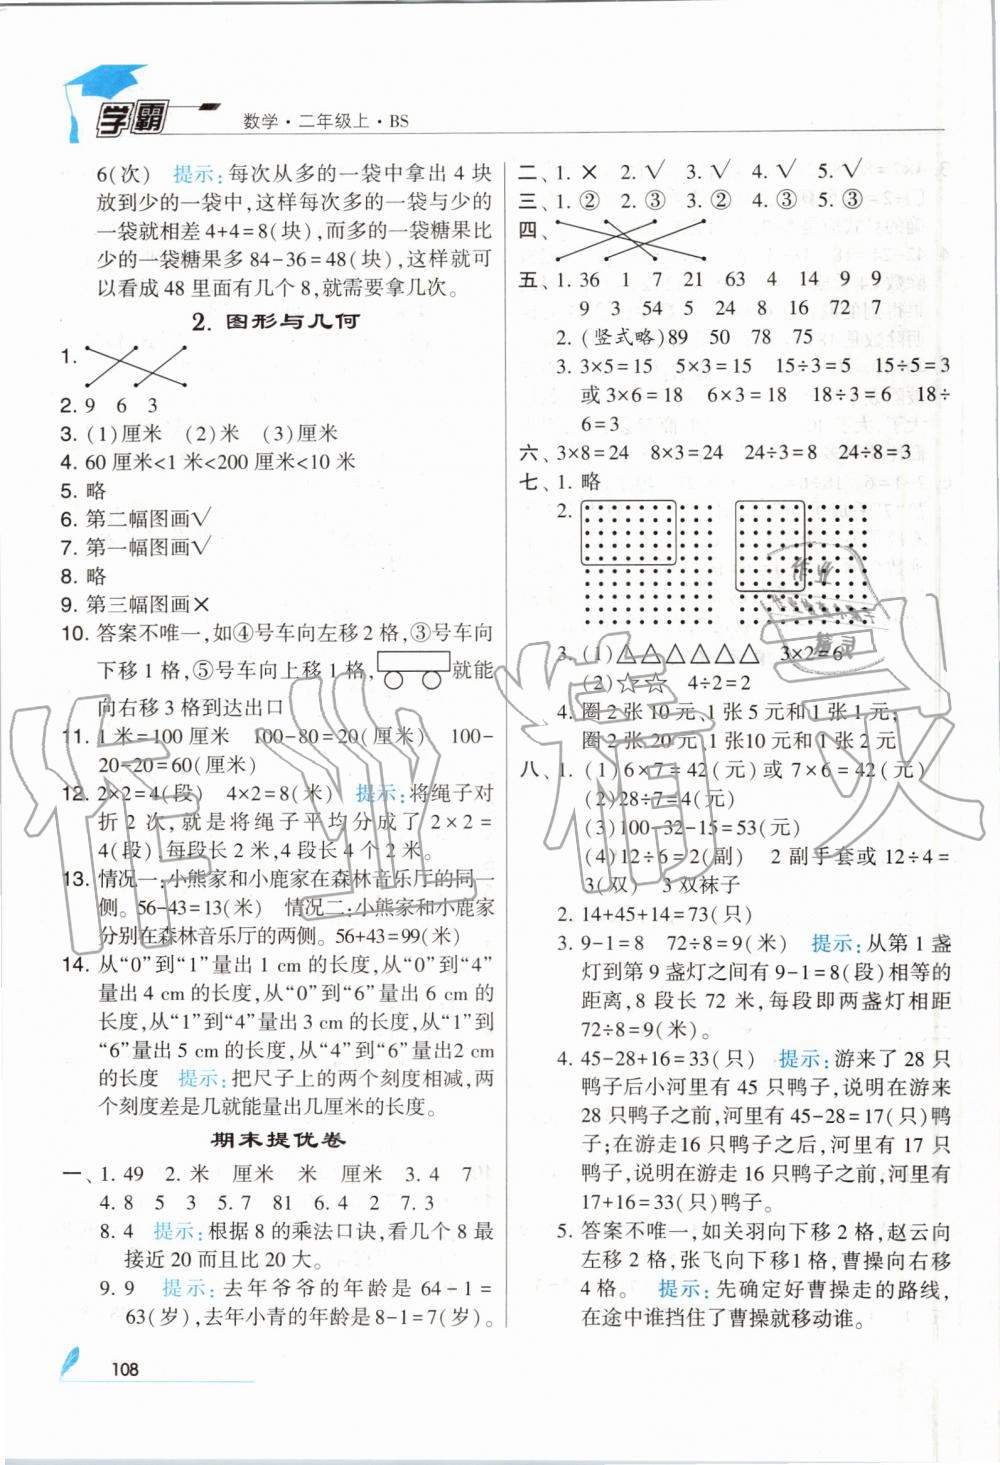 学霸
数学·二年级上·BS
6(次) 提示:每次从多的一袋中拿出 4 块
放到少的一袋中,这样每次多的一袋与少的
一袋就相差 4+4=8(块),而多的一袋糖果比
少的一袋糖果多 84-36=48(块),这样就可
以看成 48 里面有几个 8,就需要拿几次。
2. 图形与几何
1.
2. 9 6 3
3. (1)厘米 (2)米 (3)厘米
4. 60 厘米<1 米<200 厘米<10 米
5. 略
6. 第二幅图画√
7. 第一幅图画√
8. 略
9. 第三幅图画×
10. 答案不唯一,如④号车向左移 2 格,③号车向
下移 1 格,⑤号车向上移 1 格,就能
向右移 3 格到达出口
11. 1 米=100 厘米 100-80=20(厘米) 100-
20-20=60(厘米)
12. 2×2=4(段) 4×2=8(米) 提示:将绳子对
折 2 次,就是将绳子平均分成了 2×2=
4(段),每段长 2 米,4 段长 4 个 2 米。
13. 情况一:小熊家和小鹿家在森林音乐厅的同一
侧。56-43=13(米) 情况二:小熊家和小鹿家
分别在森林音乐厅的两侧。56+43=99(米)
14. 从“0”到“1”量出 1 cm 的长度,从“0”到“4”
量出 4 cm 的长度,从“0”到“6”量出 6 cm 的
长度,从“1”到“4”量出 3 cm 的长度,从“1”到
“6”量出 5 cm 的长度,从“4”到“6”量出2 cm
的长度 提示:把尺子上的两个刻度相减,两
个刻度差是几就能量出几厘米的长度。
期末提优卷
一、1. 49 2. 米 厘米 米 厘米 3. 4 7
4. 8 5 3 5. 7 81 6. 4 2 7. 3
8. 4 提示:根据 8 的乘法口诀,看几个 8 最
接近 20 而且比 20 大。
9. 9 提示:去年爷爷的年龄是 64-1=
63(岁),去年小青的年龄是 8-1=7(岁)。
108
二、1. × 2. √ 3. √ 4. √ 5. √
三、1. ② 2. ③ 3. ② 4. ③ 5. ③
四、
五、1. 36 1 7 21 63 4 14 9 9
9 3 54 5 24 8 16 72 7
2. (竖式略)89 50 78 75
3. 3×5=15 5×3=15 15÷3=5 15÷5=3
或 3×6=18 6×3=18 18÷3=6 18÷
6=3
六、3×8=24 8×3=24 24÷3=8 24÷8=3
七、1. 略
2.
3. (1)△△△△△△ 3×2=6
(2)☆☆ 4÷2=2
4. 圈 2 张 10 元、1 张 5 元和 1 张 1 元;
圈 2 张 20 元、1 张10 元和 1 张 2 元
八、1. (1)6×7=42(元)或 7×6=42(元)
(2)28÷7=4(元)
(3)100-32-15=53(元)
(4)12÷6=2(副) 2 副手套或 12÷4=
3(双) 3 双袜子
2. 14+45+14=73(只)
3. 9-1=8 72÷8=9(米) 提示:从第 1 盏
灯到第 9 盏灯之间有 9-1=8(段)相等的
距离,8 段长 72 米,每段即两盏灯相距
72÷8=9(米)。
4. 45-28+16=33(只) 提示:游来了 28 只
鸭子后小河里有 45 只鸭子,说明在游来
28 只鸭子之前,河里有 45-28=17(只)鸭
子;在游走16 只鸭子之后,河里有 17 只
鸭子,说明在游走 16 只鸭子之前,河里有
17+16=33(只)鸭子。
5. 答案不唯一,如关羽向下移 2 格,赵云向
左移 2 格,张飞向下移1 格,曹操向右移
4 格。 提示:先确定好曹操走的路线,
在途中谁挡住了曹操就移动谁。
作业精灵